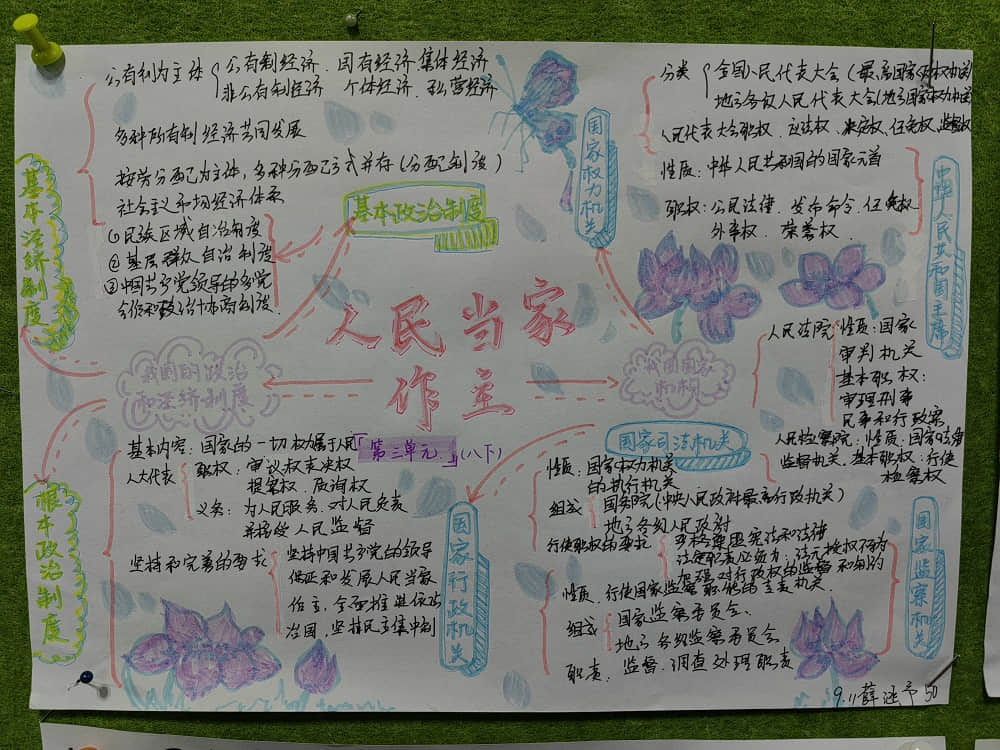 人民当家
作主
「第三单元」(八下)
我国的政治
和经济制度
基本经济制度
公有制为主体
公有制经济 国有经济 集体经济
非公有制经济 个体经济 私营经济
多种所有制经济共同发展
按劳分配为主体,多种分配方式并存(分配制度)
社会主义市场经济体系
基本政治制度
①民族区域自治制度
②基层群众自治制度
③中国共产党领导的多党
合作和政治协商制度
根本政治制度
基本内容:国家的一切权属于人民
人大代表
职权:审议权表决权
提案权、质询权
义务:为人民服务、对人民负责
并接受人民监督
坚持和完善的要求
坚持中国共产党的领导
保证和发展人民当家
作主,全面推进依法
治国,坚持民主集中制
我国国家
机构
国家权力机关
分类
全国人民代表大会(最高国家权力机关)
地方各级人民代表大会(地方国家权力机关)
人民代表大会职权、立法权、决定权、任免权、监督权
中华人民共和国主席
性质:中华人民共和国的国家元首
职权:公民法律、发布命令、任免权
外事权、荣誉权
国家司法机关
人民法院
性质:国家
审判机关
基本职权:
审理刑事
民事和行政案
人民检察院:性质:国家法律
监督机关、基本职权:行使
检察权
国家行政机关
性质:国家权力机关
的执行机关
组成
国务院(中央人民政府最高行政机关)
地方各级人民政府
行使职权的要求
严格遵循宪法和法律
法定职责必须为;法无授权不可为
加强对行政权的监督和制约
国家监察机关
性质、行使国家监察职能的专责机关
组成
国家监察委员会、
地方各级监察委员会
职责、监督、调查处理职责
9.11 薛涵予 50